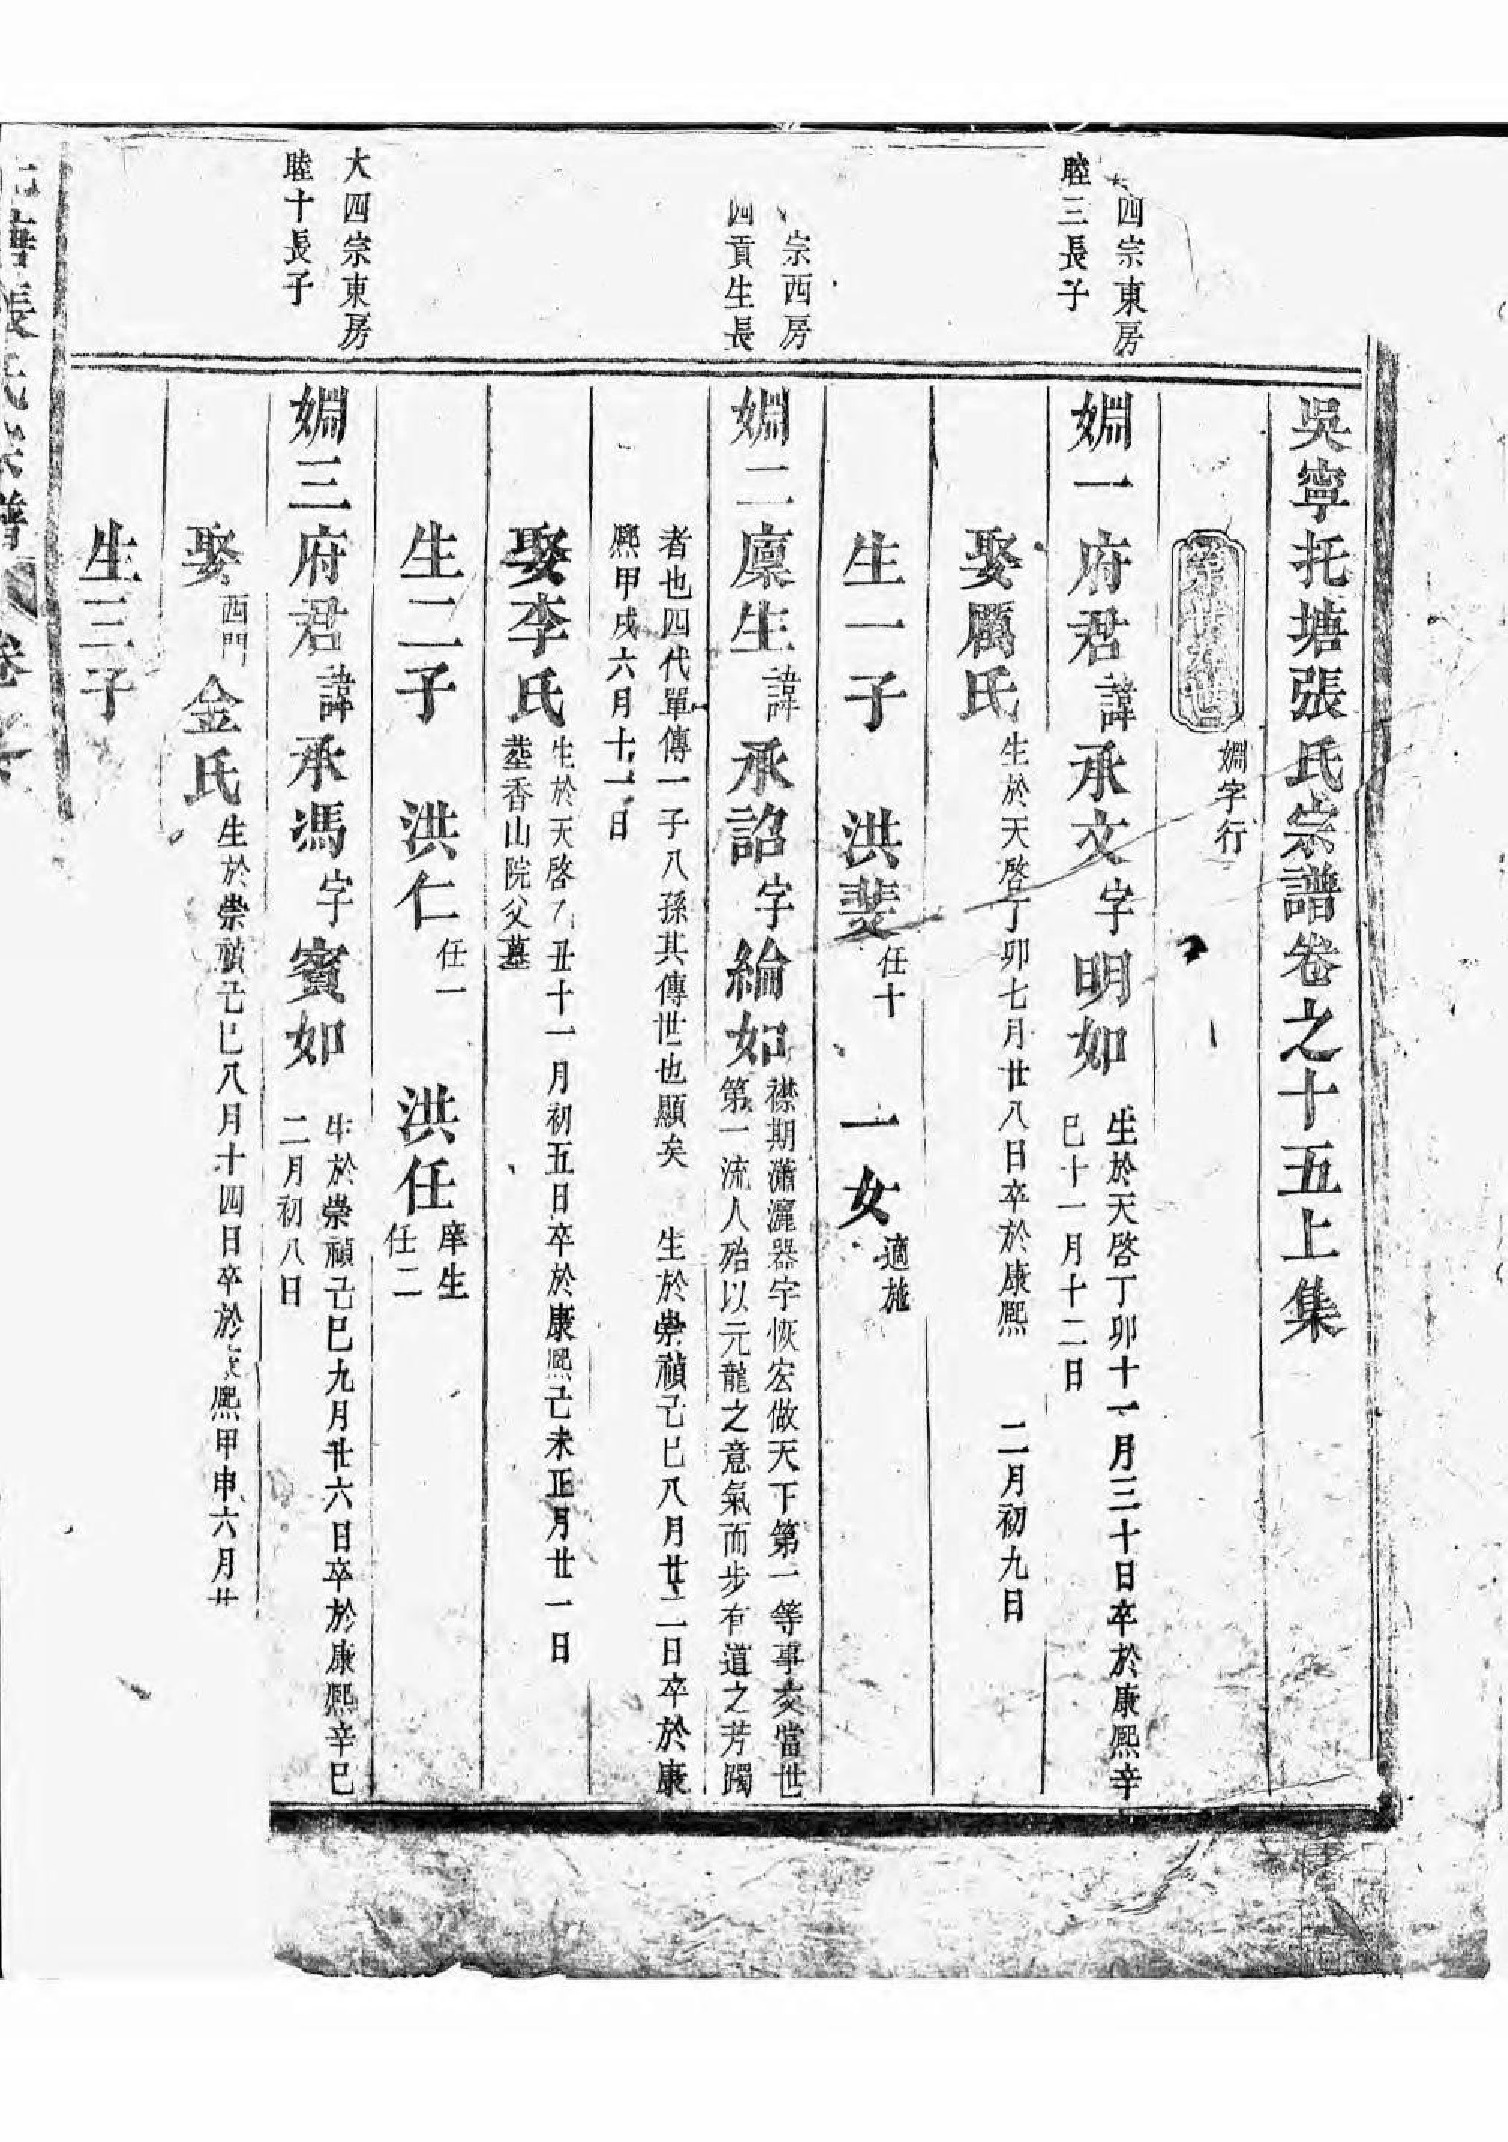 吳寧托塘張氏宗譜卷之十五上集
嫺字行
四宗東房
睦三長子
嫺一府君諱承文字明如
生於天啓丁卯十一月三十日卒於康熙辛
巳十一月十二日
娶厲氏
生於天啓丁卯七月廿八日卒於康熙 二月初九日
生一子 洪斐任十 一女適施
宗西房
四貢生長
嫺二廩生諱承詔字綸如
襟期瀟灑器宇恢宏做天下第一等事交當世
第一流人殆以元龍之意氣而步有道之芳躅
者也四代單傳一子八孫其傳世也顯矣 生於崇禎己巳八月廿二日卒於康
熙甲戌六月十一日
娶李氏
生於天啓 丑十一月初五日卒於康熙己未正月廿一日
塟香山院父墓
生二子 洪仁任一 洪任庠生
任二
大四宗東房
睦十長子
嫺三府君諱承馮字賓如
生於崇禎己巳九月廿六日卒於康熙辛巳
二月初八日
娶西門金氏
生於崇禎己巳八月十四日卒於 熙甲申六月廿
生三子
張氏宗譜 卷